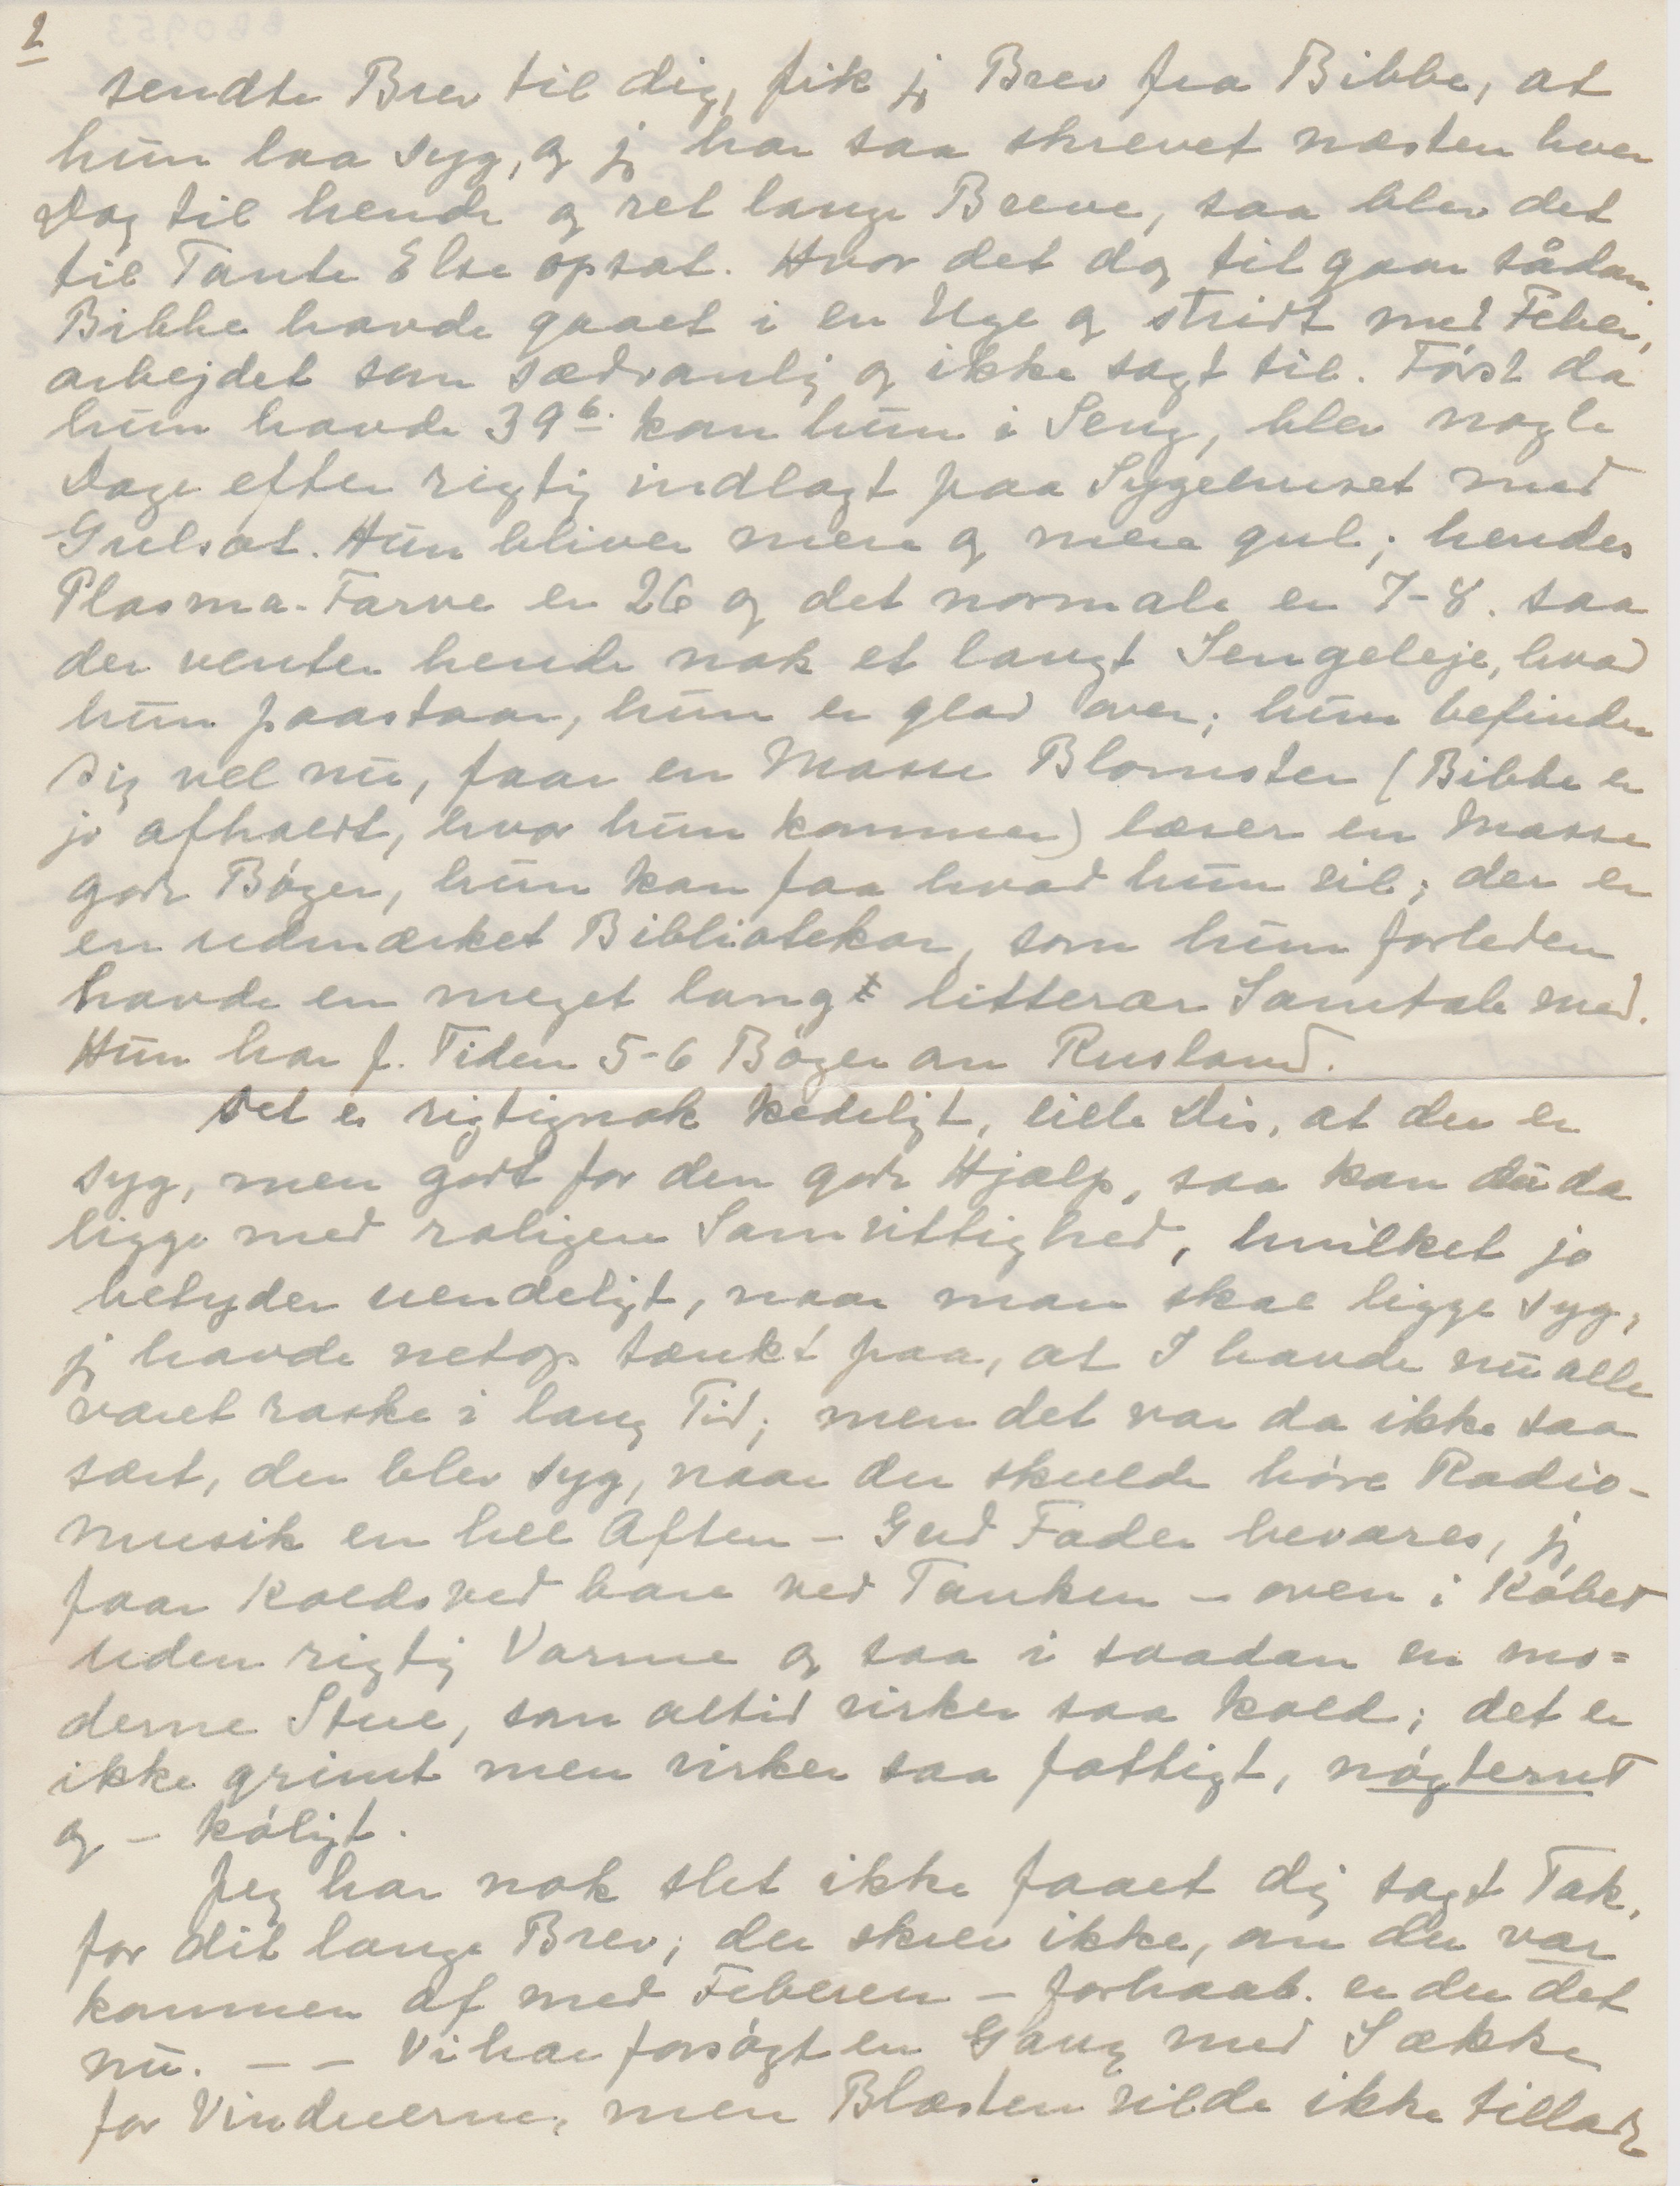 2
sendte Brev til dig, fik jg Brev fra Bibbe, at
hun laa syg, og jg har saa skrevet næsten hver
Dag til hende og ret lange Breve, saa blev det
til Tante Else opsat. Hvor det dog til gaar sådan.
Bibbe havde gaaet i en Uge og stridt med Feber,
arbejdet som sædvanlig og ikke sagt til. Først da
hun havde 39⁶. kom hun i Seng, blev nogle
Dage efter rigtig indlagt paa Sygehuset med
Gulsot. Hun bliver mere og mere gul; hendes
Plasma-Farve er 26 og det normale er 7-8. saa
der venter hende nok et langt Sengeleje, hvad
hun paastaar, hun er glad over; hun befinder
sig vel nu, faar en Masse Blomster (Bibbe er
jo afholdt, hvor hun kommer) læser en Masse
gode Bøger, hun kan faa hvad hun vil; der er
en udmærket Bibliotekar, som hun forleden
havde en meget lang litterær Samtale med.
Hun har f. Tiden 5-6 Bøger om Rusland.
Det er rigtignok kedeligt, lille Dis, at du er
syg, men godt for den gode Hjælp, saa kan du da
ligge med roligere Samvittighed, hvilket jo
betyder uendeligt, naar man skal ligge syg,
jg havde netop tænkt paa, at I havde nu alle
været raske i lang Tid; men det var da ikke saa
sært, du blev syg, naar du skulde høre Radio-
musik en hel Aften - Gud Fader bevares, jg
faar Koldsved bare ved Tanken - oven i Købet
uden rigtig Varme og saa i saadan en mo=
derne Stue, som altid virker saa kold; det er
ikke grimt men virker saa fattigt, nøgternt
og - køligt.
Jeg har nok slet ikke faaet dig sagt Tak,
for dit lange Brev; du skrev ikke, om du var
kommen af med Feberen - forhaab. er du det
nu. - - Vi har forsøgt en Gang med Sække
for Vinduerne, men Blæsten vilde ikke tillade